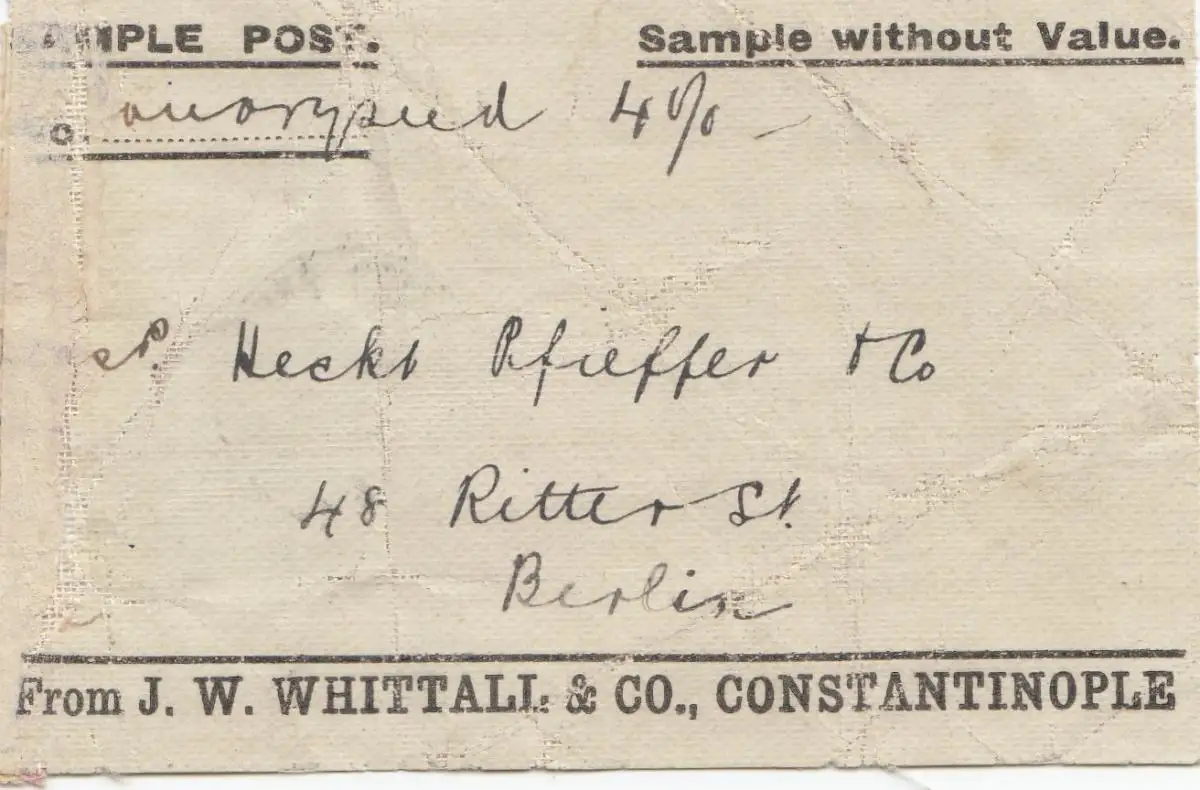 SAMPLE POST. Sample without Value.
o. 4%
Heckt Pfieffer & Co
48 Ritter St.
Berlin
From J. W. WHITTALL & CO., CONSTANTINOPLE